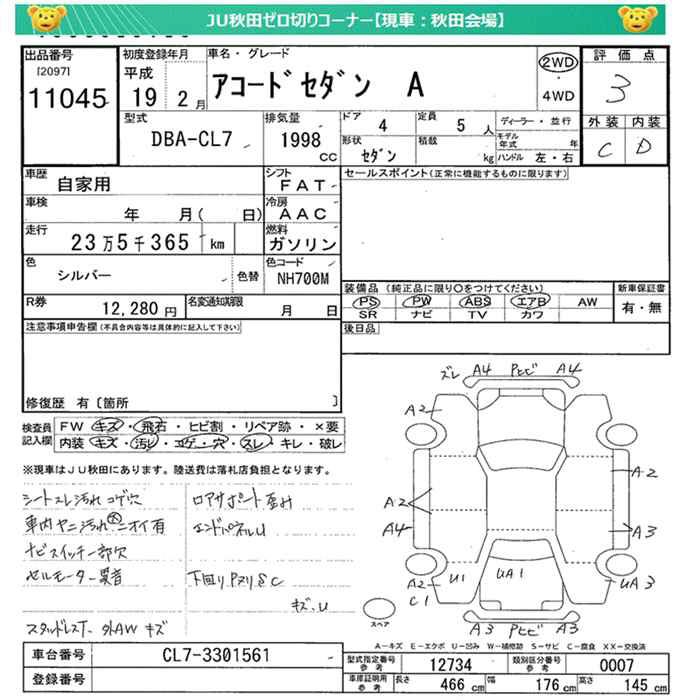 JU秋田ゼロ切りコーナー【現車：秋田会場】
出品番号
[2097]
11045
初度登録年月
平成
19 2 月
車名・グレード
アコードセダン A
2WD
・
4WD
評価点
3
外装 内装
C D
型式
DBA-CL7
排気量
1998
CC
ドア 4
定員 5 人
ディーラー・並行
形状 セダン
積載 kg
モデル年式 年
ハンドル 左・右
車歴
自家用
シフト
FAT
セールスポイント(正常に機能するものに限ります)
車検
年 月( 日)
冷房
AAC
走行
23万5千365 km
燃料
ガソリン
色
シルバー
色替
色コード
NH700M
装備品(純正品に限り○をつけてください)
PS PW ABS エアB AW
SR ナビ TV カワ
新車保証書
有・無
R券
12,280 円
名変通知期限
月 日
後日品
注意事項申告欄(不具合内容等は具体的に記入して下さい)
修復歴 有〔箇所 〕
検査員記入欄
FW キズ・飛石・ヒビ割・リペア跡・×要
内装 キズ・汚れ・コゲ・穴・スレ・キレ・破レ
※現車はJU秋田にあります。陸送費は落札店負担となります。
シートスレ汚れコゲ穴
車内ヤニ汚れ大ニオイ有
ナビスイッチ一部欠
セルモーター異音
スタッドレスT. 外AW キズ
ロアサポート歪み
エンドパネルU
下回りPヌリSC
キズ.U
ズレ A4 Pヒビ A4
A2
A2
A2
A4
A3
A2
C1
U1
UA1
UA3
A3 Pヒビ A3
スペア
A－キズ E－エクボ U－凹み W－補修跡 S－サビ C－腐食 XX－交換済
車台番号
CL7-3301561
登録番号
型式指定番号
参考
12734
類別区分番号
参考
0007
車庫証明用
参考
長さ 466 cm
幅 176 cm
高さ 145 cm